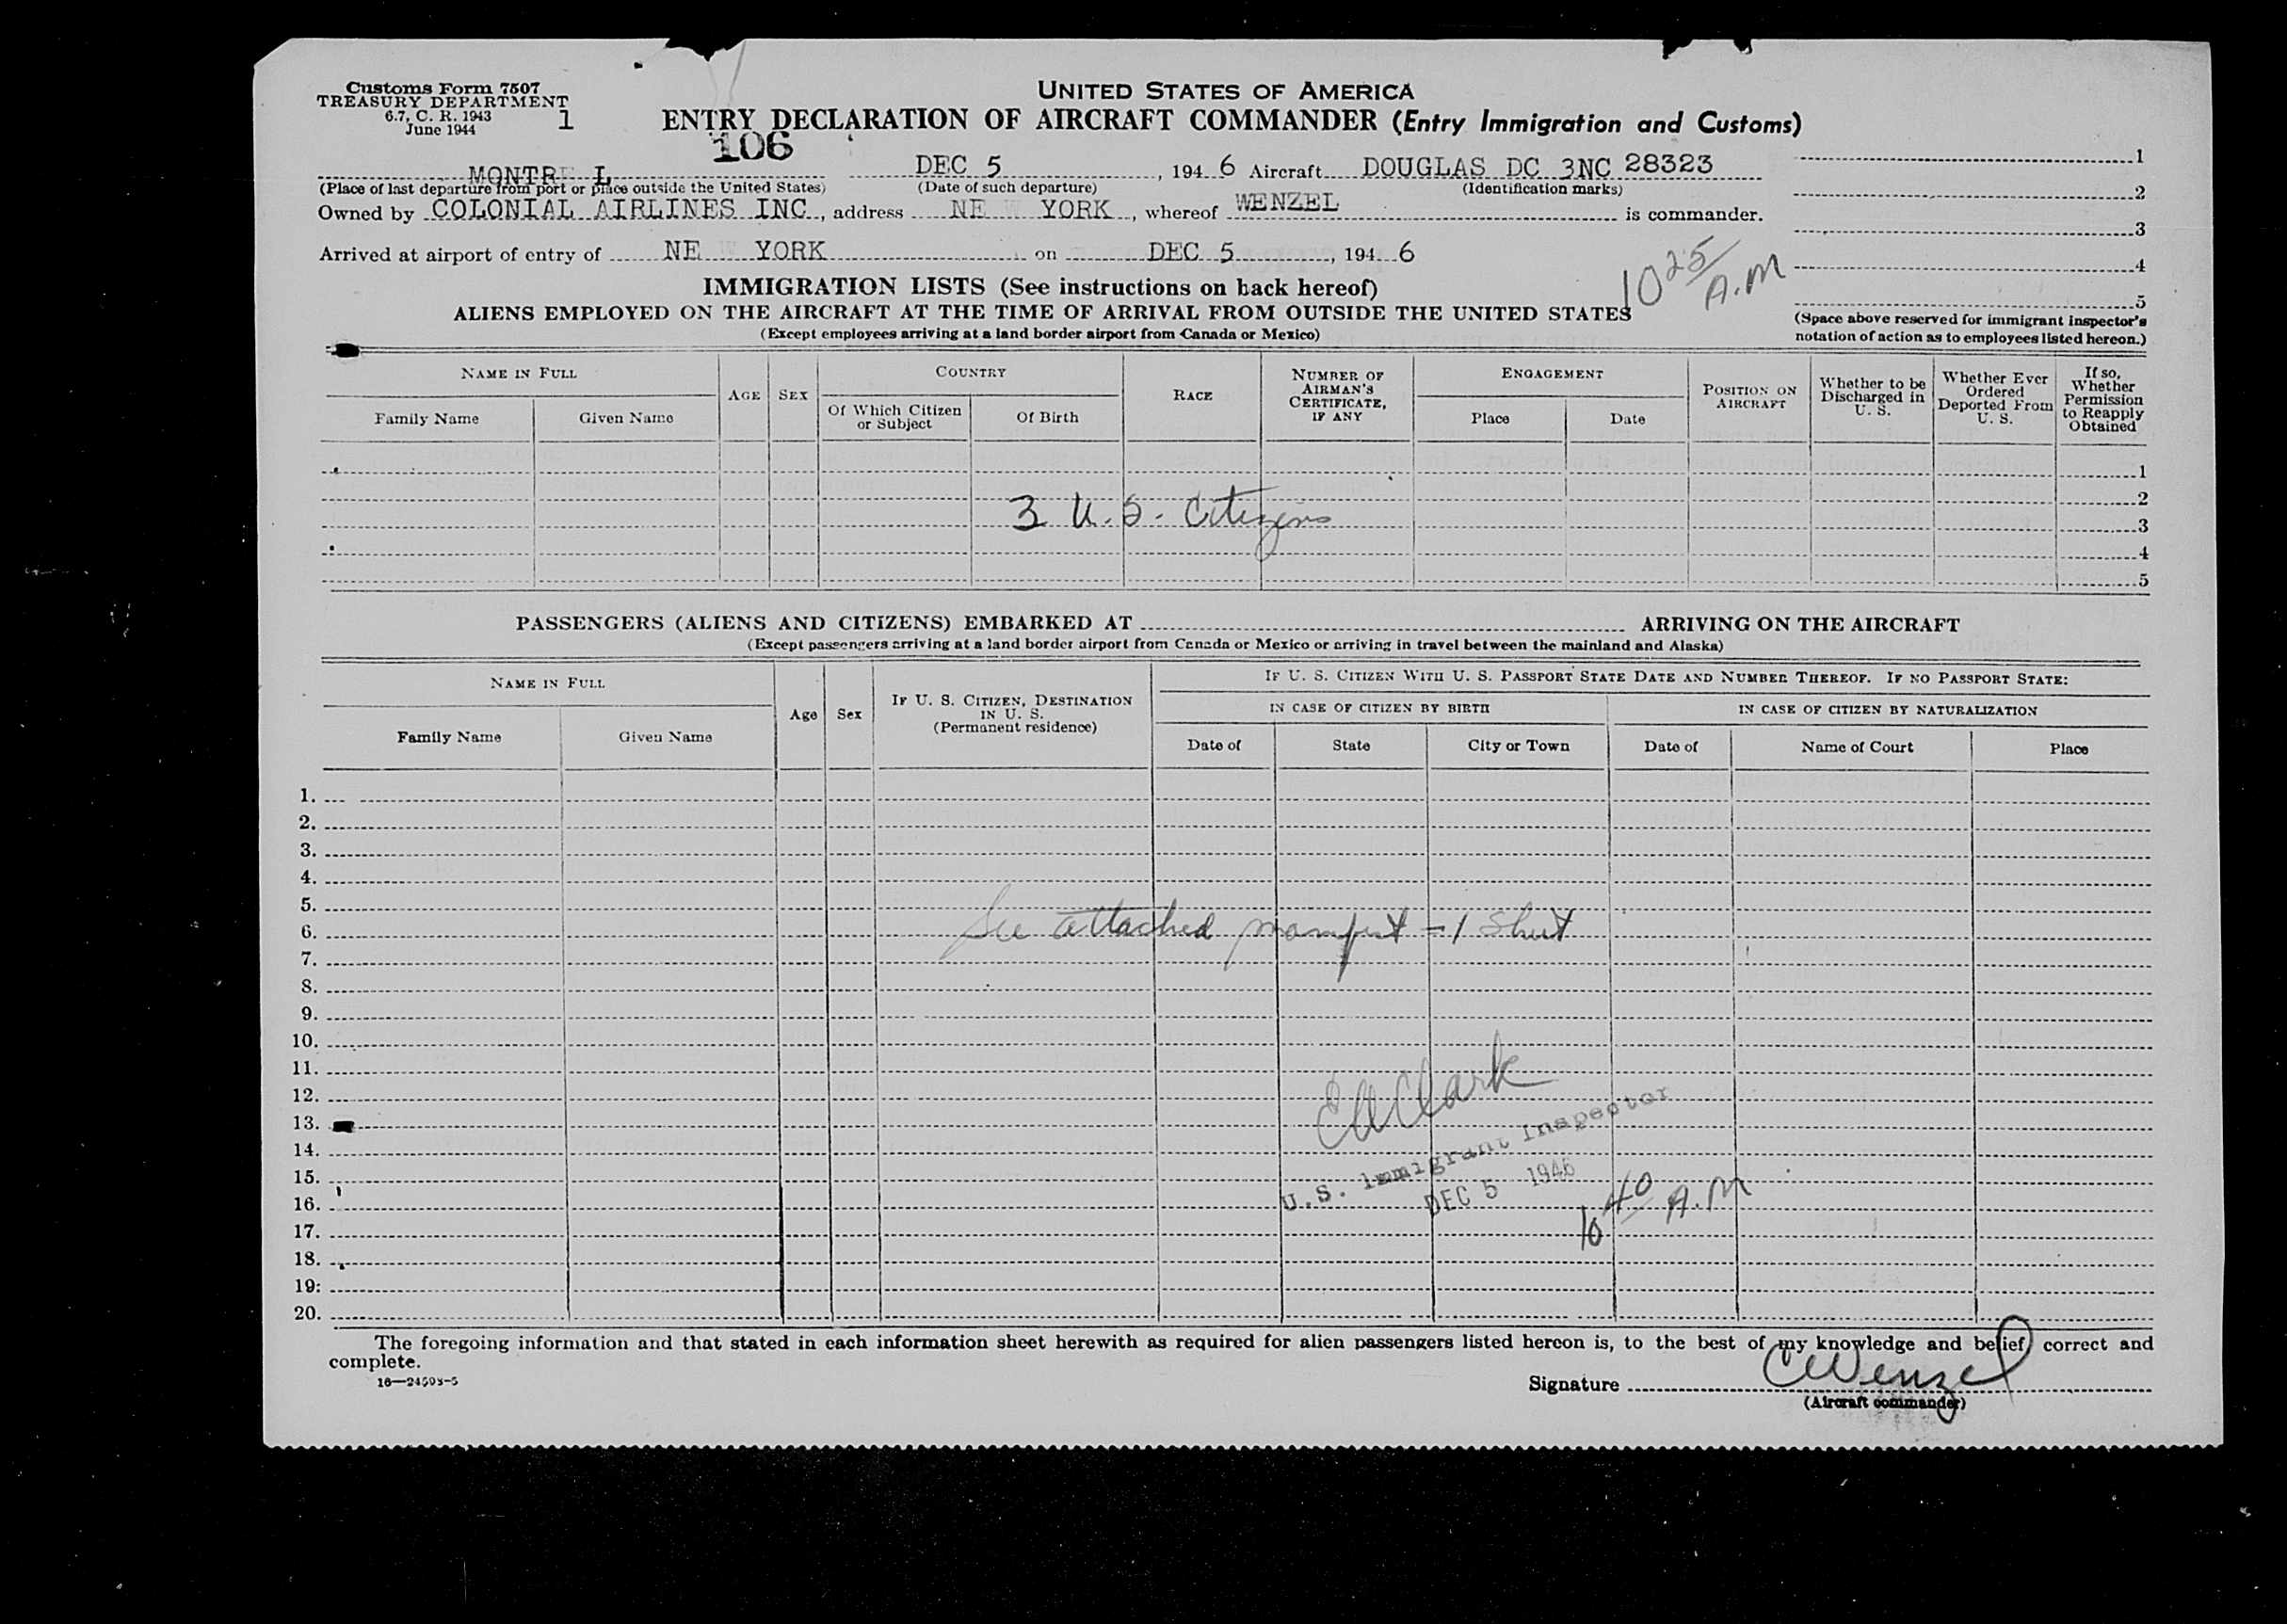 Customs Form 7507
TREASURY DEPARTMENT
6.7, C. R. 1943
June 1944
1
UNITED STATES OF AMERICA
ENTRY DECLARATION OF AIRCRAFT COMMANDER (Entry Immigration and Customs)
106
MONTRE L DEC 5, 194 6 Aircraft DOUGLAS DC 3NC 28323
(Place of last departure from port or place outside the United States) (Date of such departure) (Identification marks)
Owned by COLONIAL AIRLINES INC, address NE W YORK, whereof WENZEL is commander.
Arrived at airport of entry of NE W YORK on DEC 5, 194 6
10 25/ A.M
1
2
3
4
5
(Space above reserved for immigrant inspector's
notation of action as to employees listed hereon.)
IMMIGRATION LISTS (See instructions on back hereof)
ALIENS EMPLOYED ON THE AIRCRAFT AT THE TIME OF ARRIVAL FROM OUTSIDE THE UNITED STATES
(Except employees arriving at a land border airport from Canada or Mexico)
NAME IN FULL
Family Name
Given Name
AGE
SEX
COUNTRY
Of Which Citizen
or Subject
Of Birth
RACE
NUMBER OF
AIRMAN'S
CERTIFICATE,
IF ANY
ENGAGEMENT
Place
Date
POSITION ON
AIRCRAFT
Whether to be
Discharged in
U. S.
Whether Ever
Ordered
Deported From
U. S.
If so,
Whether
Permission
to Reapply
Obtained
1
2
3 U.S. Citizens
3
4
5
PASSENGERS (ALIENS AND CITIZENS) EMBARKED AT ARRIVING ON THE AIRCRAFT
(Except passengers arriving at a land border airport from Canada or Mexico or arriving in travel between the mainland and Alaska)
NAME IN FULL
Family Name
Given Name
Age
Sex
IF U. S. CITIZEN, DESTINATION
IN U. S.
(Permanent residence)
IF U. S. CITIZEN WITH U. S. PASSPORT STATE DATE AND NUMBER THEREOF. IF NO PASSPORT STATE:
IN CASE OF CITIZEN BY BIRTH
Date of
State
City or Town
IN CASE OF CITIZEN BY NATURALIZATION
Date of
Name of Court
Place
1.
2.
3.
4.
5.
6. See attached manifest = 1 Sheet
7.
8.
9.
10.
11.
12. EA Clark
13.
14. U.S. Immigrant Inspector
15. DEC 5 1946
16. 10 40 A.M
17.
18.
19:
20.
The foregoing information and that stated in each information sheet herewith as required for alien passengers listed hereon is, to the best of my knowledge and belief correct and
complete.
16—24593-5
Signature CWenzel
(Aircraft commander)